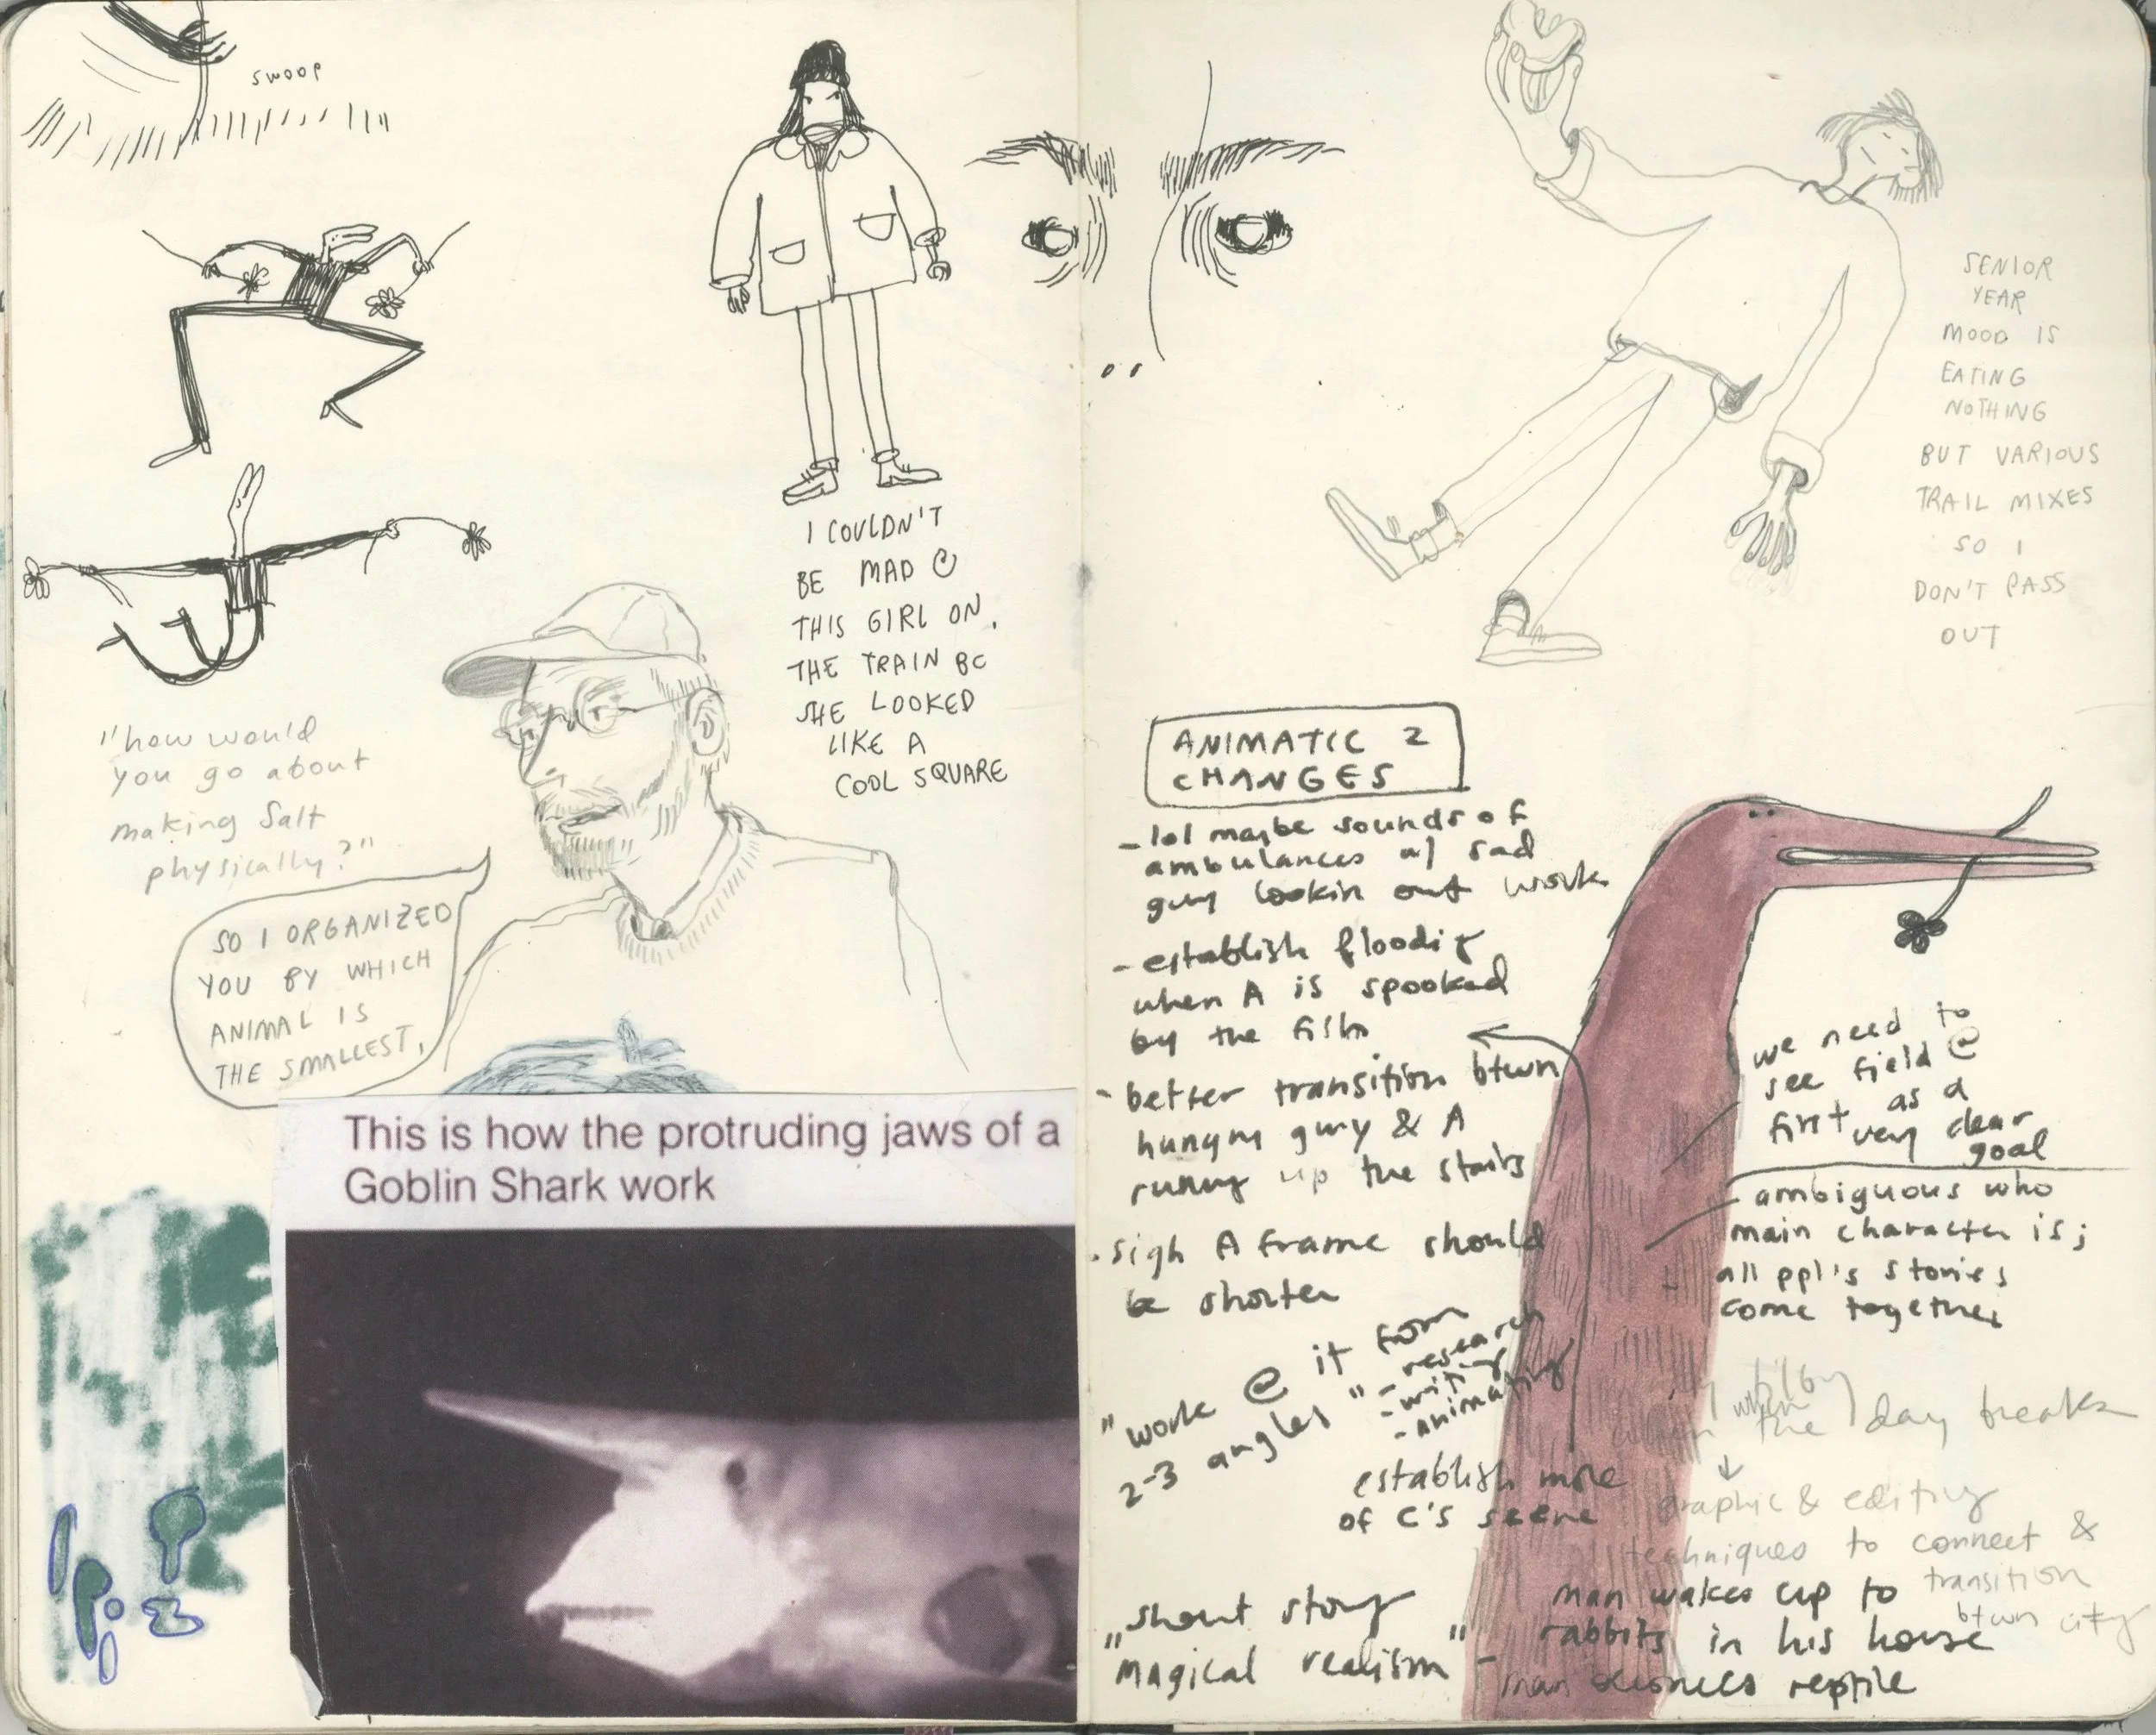 swoop
I COULDN'T
BE MAD @
THIS GIRL ON
THE TRAIN BC
SHE LOOKED
LIKE A
COOL SQUARE
"how would
you go about
making salt
physically?"
SO I ORGANIZED
YOU BY WHICH
ANIMAL IS
THE SMALLEST,
This is how the protruding jaws of a
Goblin Shark work
SENIOR
YEAR
MOOD IS
EATING
NOTHING
BUT VARIOUS
TRAIL MIXES
SO I
DON'T PASS
OUT
ANIMATIC 2
CHANGES
- lol maybe sounds of
ambulances w/ sad
guy lookin out work
- establish flooding
when A is spooked
by the fish
- better transition btwn
hungry guy & A
runny up the stairs
- sigh A frame should
be shorter
"work @ it from
2-3 angles"
- research
- writing
- animating
establish more
of C's scene
we need to
see field @
first as a
very clear
goal
- ambiguous who
main character is;
all ppl's stories
come together
tilby
when
the day breaks
graphic & editing
techniques to connect &
transition
btwn city
"short story
magical realism" -
man wakes up to
rabbits in his house
- man disowns reptile